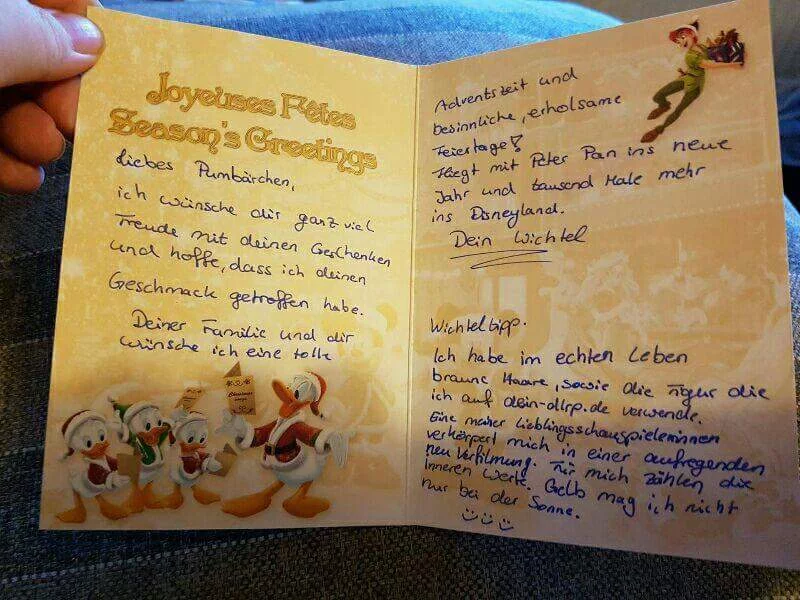 Joyeuses Fêtes
Season's Greetings
Liebes Pumbärchen,
ich wünsche dir ganz viel
Freude mit deinen Geschenken
und hoffe, dass ich deinen
Geschmack getroffen habe.
Deiner Familie und dir
wünsche ich eine tolle
Adventszeit und
besinnliche, erholsame
Feiertage!
Fliegt mit Peter Pan ins neue
Jahr und tausend Male mehr
ins Disneyland.
Dein Wichtel
Wichteltipp.
Ich habe im echten Leben
braune Haare, sowie die Figur die
ich auf dein-dlrp.de verwende.
Eine meiner Lieblingsschauspielerinnen
verkörpert mich in einer aufregenden
neu Verfilmung. Für mich zählen die
Inneren Werte. Gelb mag ich nicht
nur bei der Sonne.